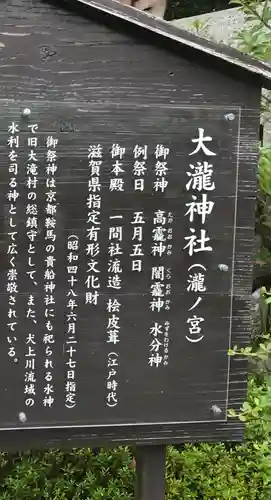 大瀧神社(瀧ノ宮)
御祭神 高龗神 闇龗神 水分神
たか おお かみ くら おお かみ みずまくりかみ
例祭日 五月五日
御本殿 一間社流造 桧皮葺(江戸時代)
滋賀県指定有形文化財
(昭和四十八年六月二十七日指定)
御祭神は京都鞍馬の貴船神社にも祀られる水神
で旧大滝村の総鎮守として、また、犬上川流域の
水利を司る神として広く崇敬されている。